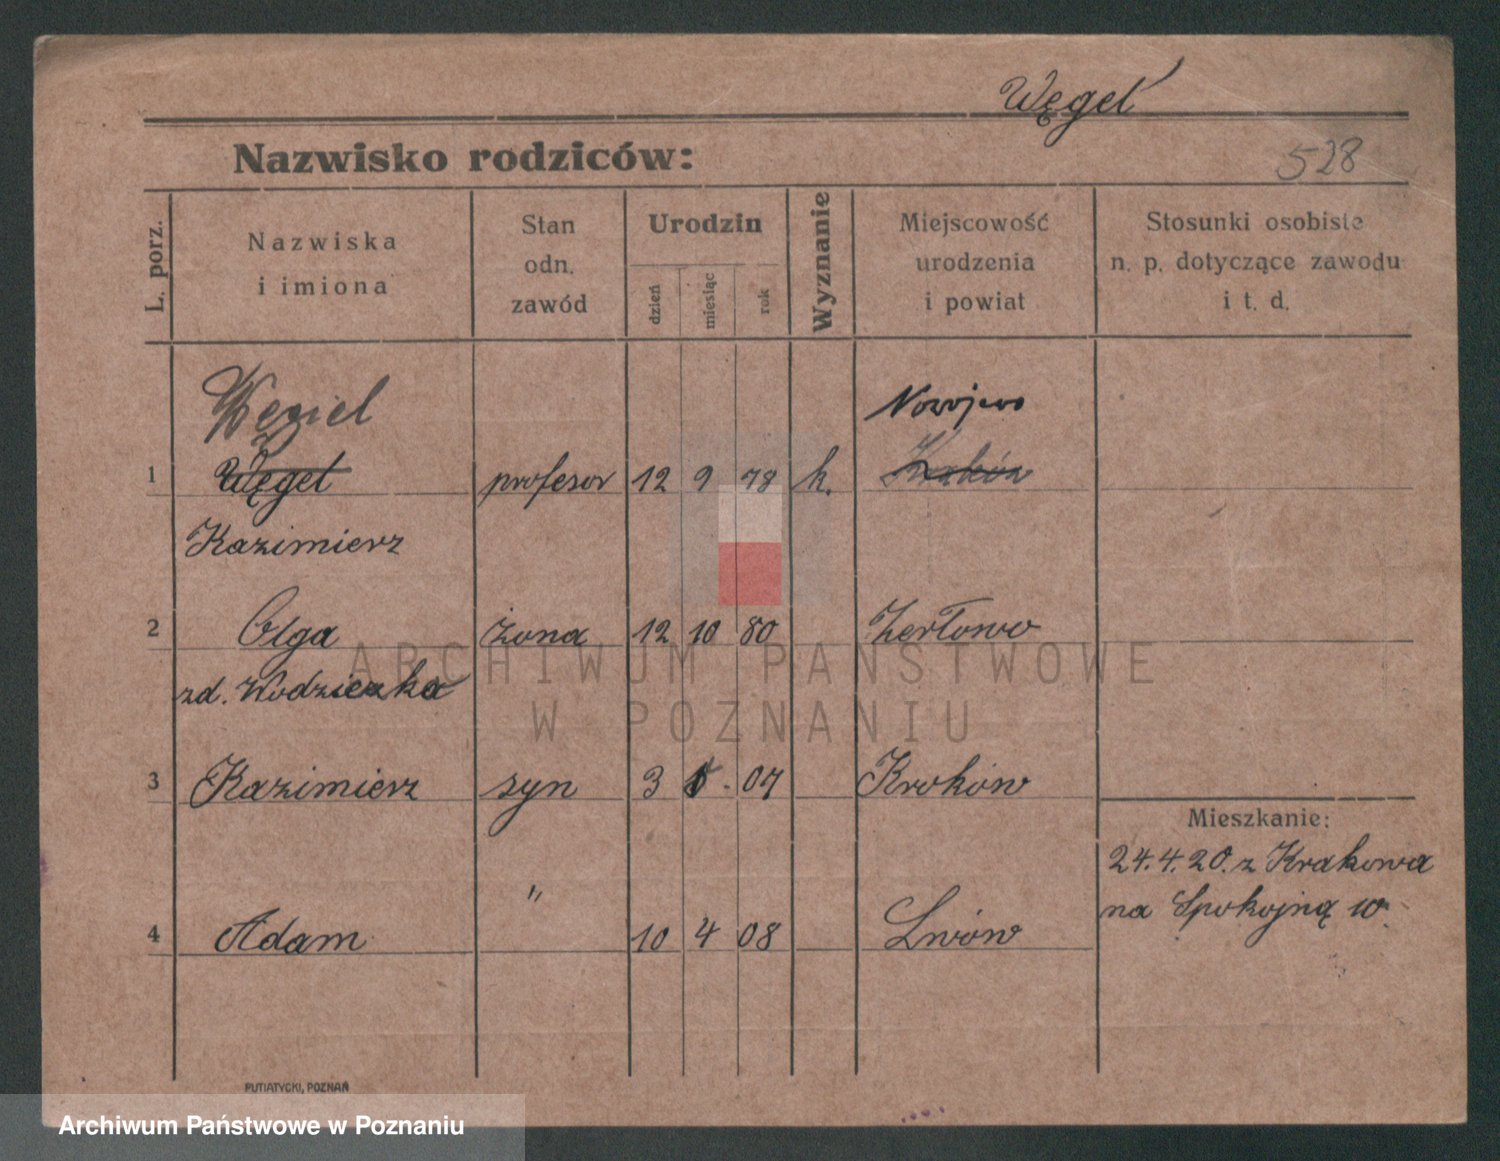 Węgel
Nazwisko rodziców:
528
L. porz.
Nazwiska
i imiona
Stan
odn.
zawód
Urodzin
dzień
miesiąc
rok
Wyznanie
Miejscowość
urodzenia
i powiat
Stosunki osobiste
n. p. dotyczące zawodu
i t. d.
Węgiel
1 Węgel profesor 12 9 78 k. Kraków
Kazimierz
2 Olga żona 12 10 80
zd. Wodziczka
3 Kazimierz syn 3 . 07 Kraków
4 Adam " 10 4 08 Lwów
Mieszkanie:
24.4.20. z Krakowa
na Spokojną 10.
PUTIATYCKI, POZNAŃ
ARCHIWUM PAŃSTWOWE
W POZNANIU
Archiwum Państwowe w Poznaniu